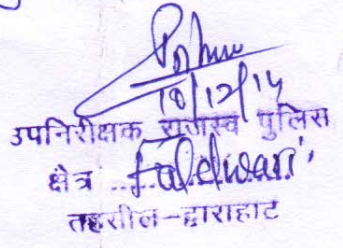 18/12/14
उपनिरीक्षक राजस्व पुलिस
क्षेत्र ...Faldwari...
तहसील-द्वाराहाट